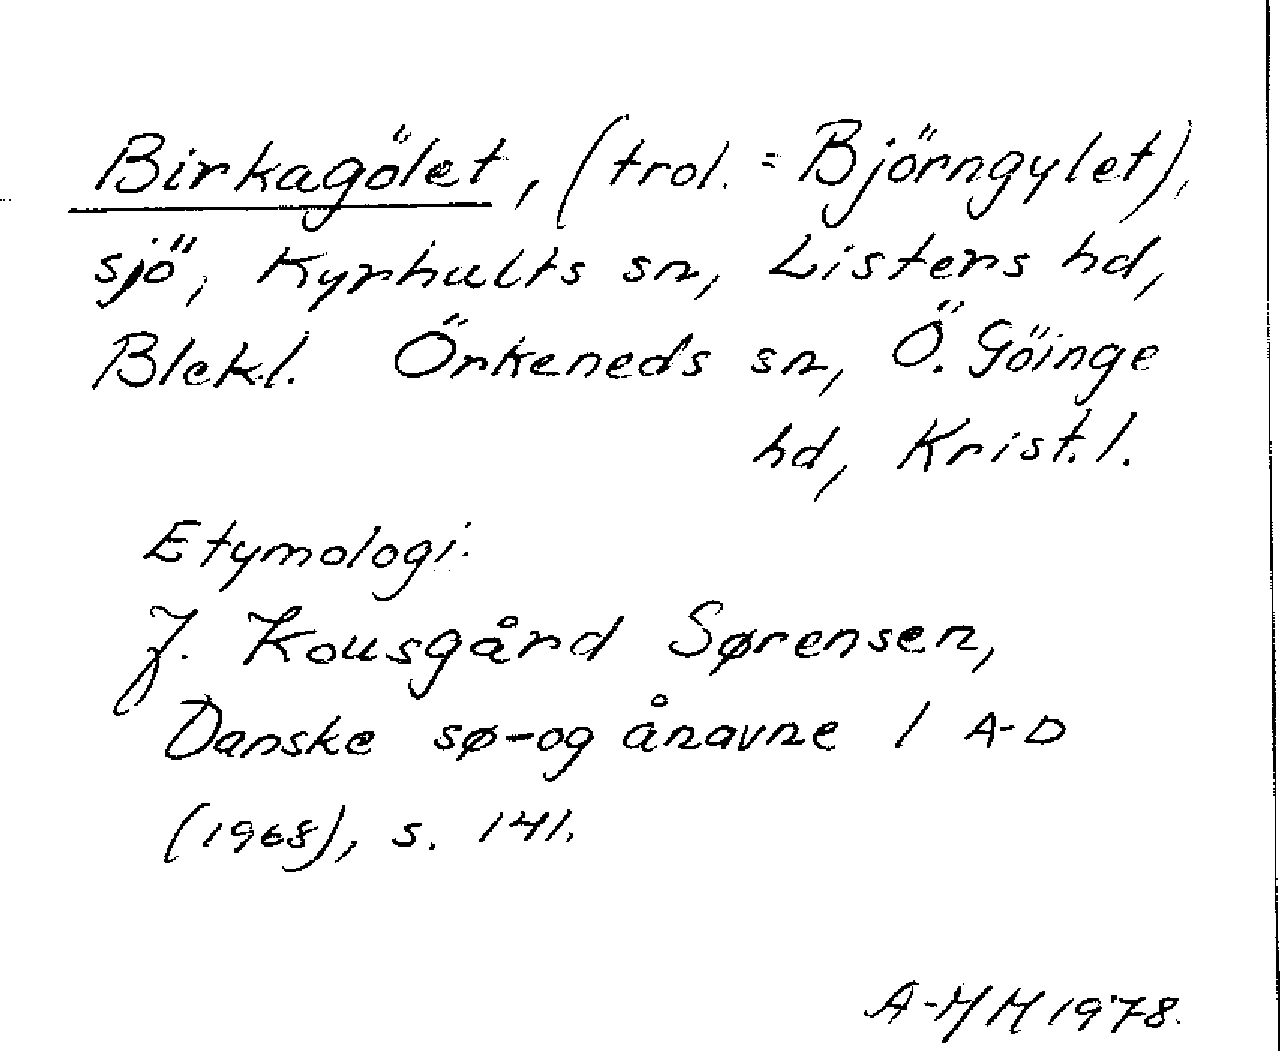 Birkagölet, (trol. = Björngylet),
sjö, Kyrhults sn, Listers hd,
Blek.l. Örkeneds sn, Ö. Göinge
hd, Krist.l.
Etymologi:
J. Kousgård Sørensen,
Danske sø- og ånavne 1 A-D
(1968), s. 141.
A-MM 1978.